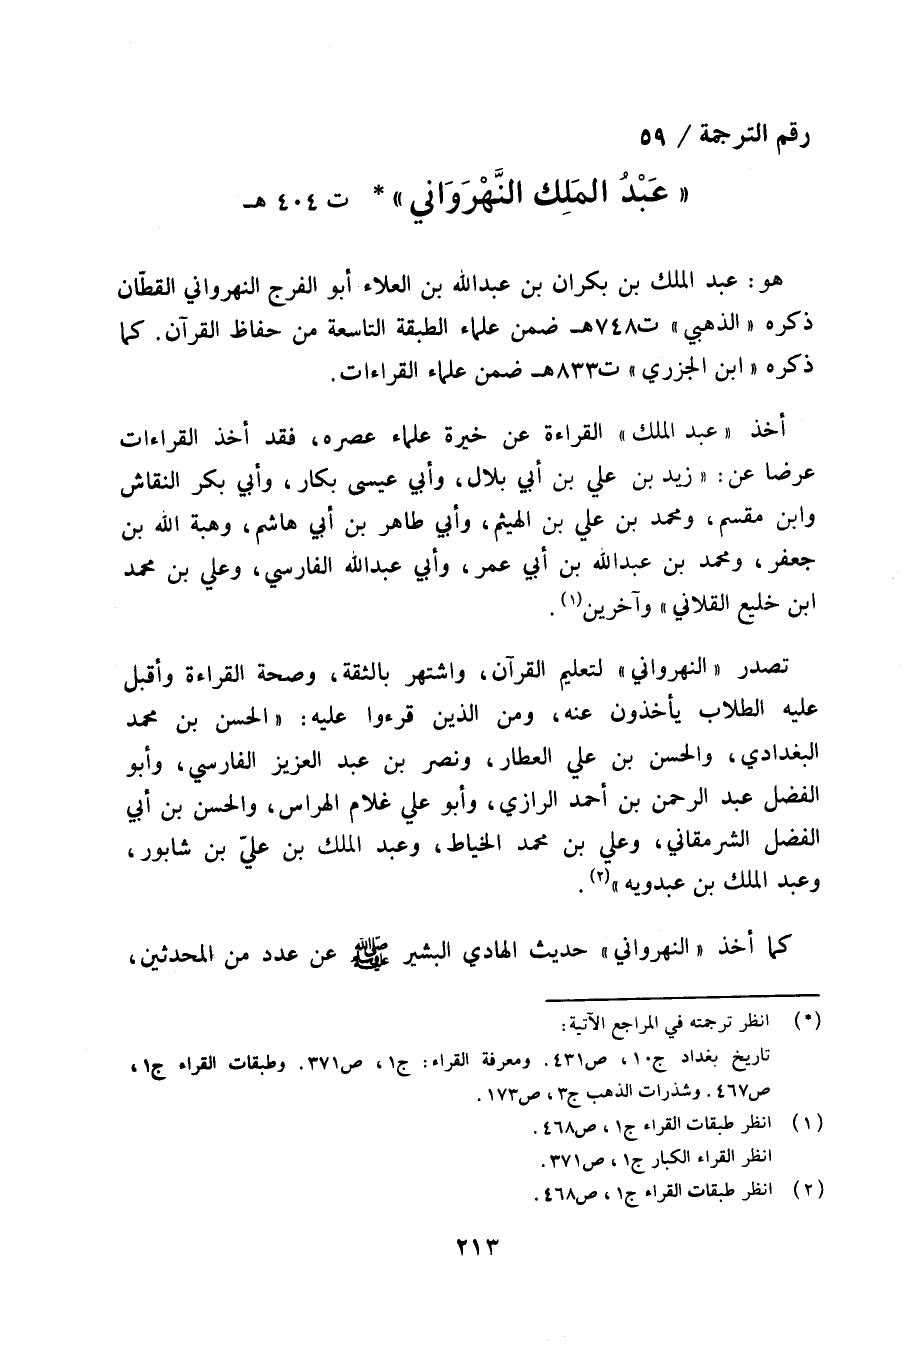 رقم الترجمة / ٥٩
« عَبْدُ المَلِك النَّهْرَوَاني » * ت ٤٠٤ هـ
هو : عبد الملك بن بكران بن عبدالله بن العلاء أبو الفرج النهرواني القطّان
ذكره « الذهبي » ت٧٤٨هـ ضمن علماء الطبقة التاسعة من حفاظ القرآن . كما
ذكره « ابن الجزري » ت٨٣٣هـ ضمن علماء القراءات .
أخذ « عبد الملك » القراءة عن خيرة علماء عصره ، فقد أخذ القراءات
عرضا عن : « زيد بن علي بن أبي بلال ، وأبي عيسى بكار ، وأبي بكر النقاش
وابن مقسم ، ومحمد بن علي بن الهيثم ، وأبي طاهر بن أبي هاشم ، وهبة الله بن
جعفر ، ومحمد بن عبدالله بن أبي عمر ، وأبي عبدالله الفارسي ، وعلي بن محمد
ابن خليع القلاني » وآخرين(١) .
تصدر « النهرواني » لتعليم القرآن ، واشتهر بالثقة ، وصحة القراءة وأقبل
عليه الطلاب يأخذون عنه ، ومن الذين قرءوا عليه : « الحسن بن محمد
البغدادي ، والحسن بن علي العطار ، ونصر بن عبد العزيز الفارسي ، وأبو
الفضل عبد الرحمن بن أحمد الرازي ، وأبو علي غلام الهراس ، والحسن بن أبي
الفضل الشرمقاني ، وعلي بن محمد الخياط ، وعبد الملك بن عليّ بن شابور ،
وعبد الملك بن عبدويه »(٢) .
كما أخذ « النهرواني » حديث الهادي البشير ﷺ عن عدد من المحدثين ،
(*) انظر ترجمته في المراجع الآتية :
تاريخ بغداد ج١٠ ، ص٤٣١ . ومعرفة القراء : ج١ ، ص٣٧١ . وطبقات القراء ج١ ،
ص٤٦٧ . وشذرات الذهب ج٣ ، ص١٧٣ .
(١) انظر طبقات القراء ج١ ، ص٤٦٨ .
انظر القراء الكبار ج١ ، ص٣٧١ .
(٢) انظر طبقات القراء ج١ ، ص٤٦٨ .
٢١٣